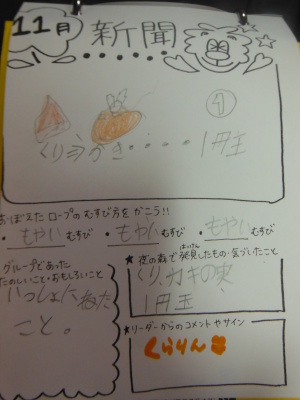 11月
新聞
1
くり
かき
1円玉
おぼえたロープのむすび方をかこう!!
・もやいむすび ・もやいむすび ・もやいむすび
グループであった
たのしいこと・おもしろいこと
いっしょにねた
こと。
★夜の森で発見したもの・気づいたこと
はっけん
くり、カキの実
1円玉
★リーダーからのコメントやサイン
くらりん